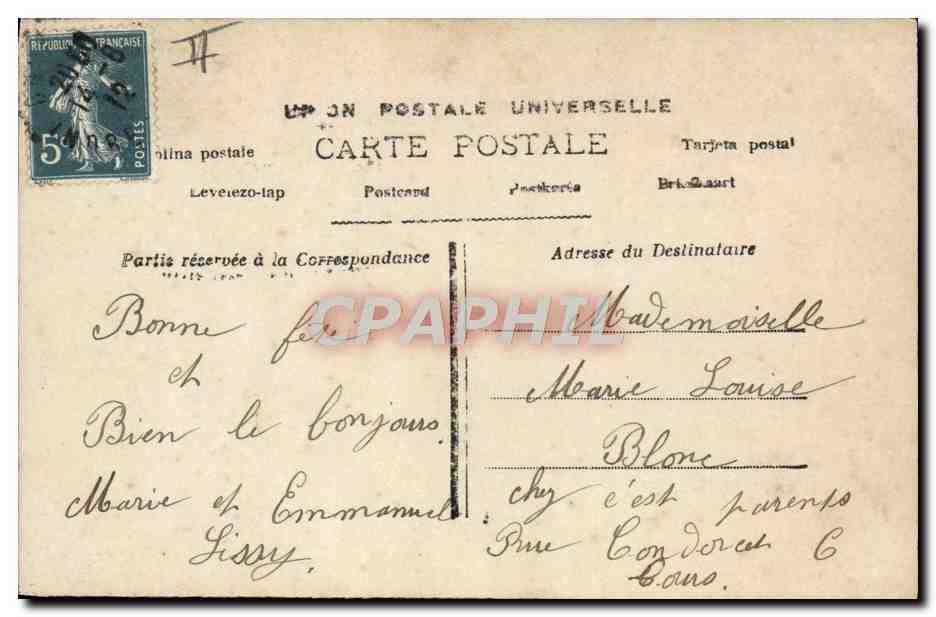 RÉPUBLIQUE FRANÇAISE
20 00
12
5c
POSTES
II
UNION POSTALE UNIVERSELLE
CARTE POSTALE
olina postale
Tarjeta postal
Levelezo-lap
Postcard
Postkarte
Briefkaart
Partie réservée à la Correspondance
Adresse du Destinataire
CPAPHIL
Bonne fête
et
Bien le bonjours.
Marie et Emmanuel
Lissy.
Mademoiselle
Marie Louise
Blonc
chez c'est parents
Rue Condorcet 6
Cours.